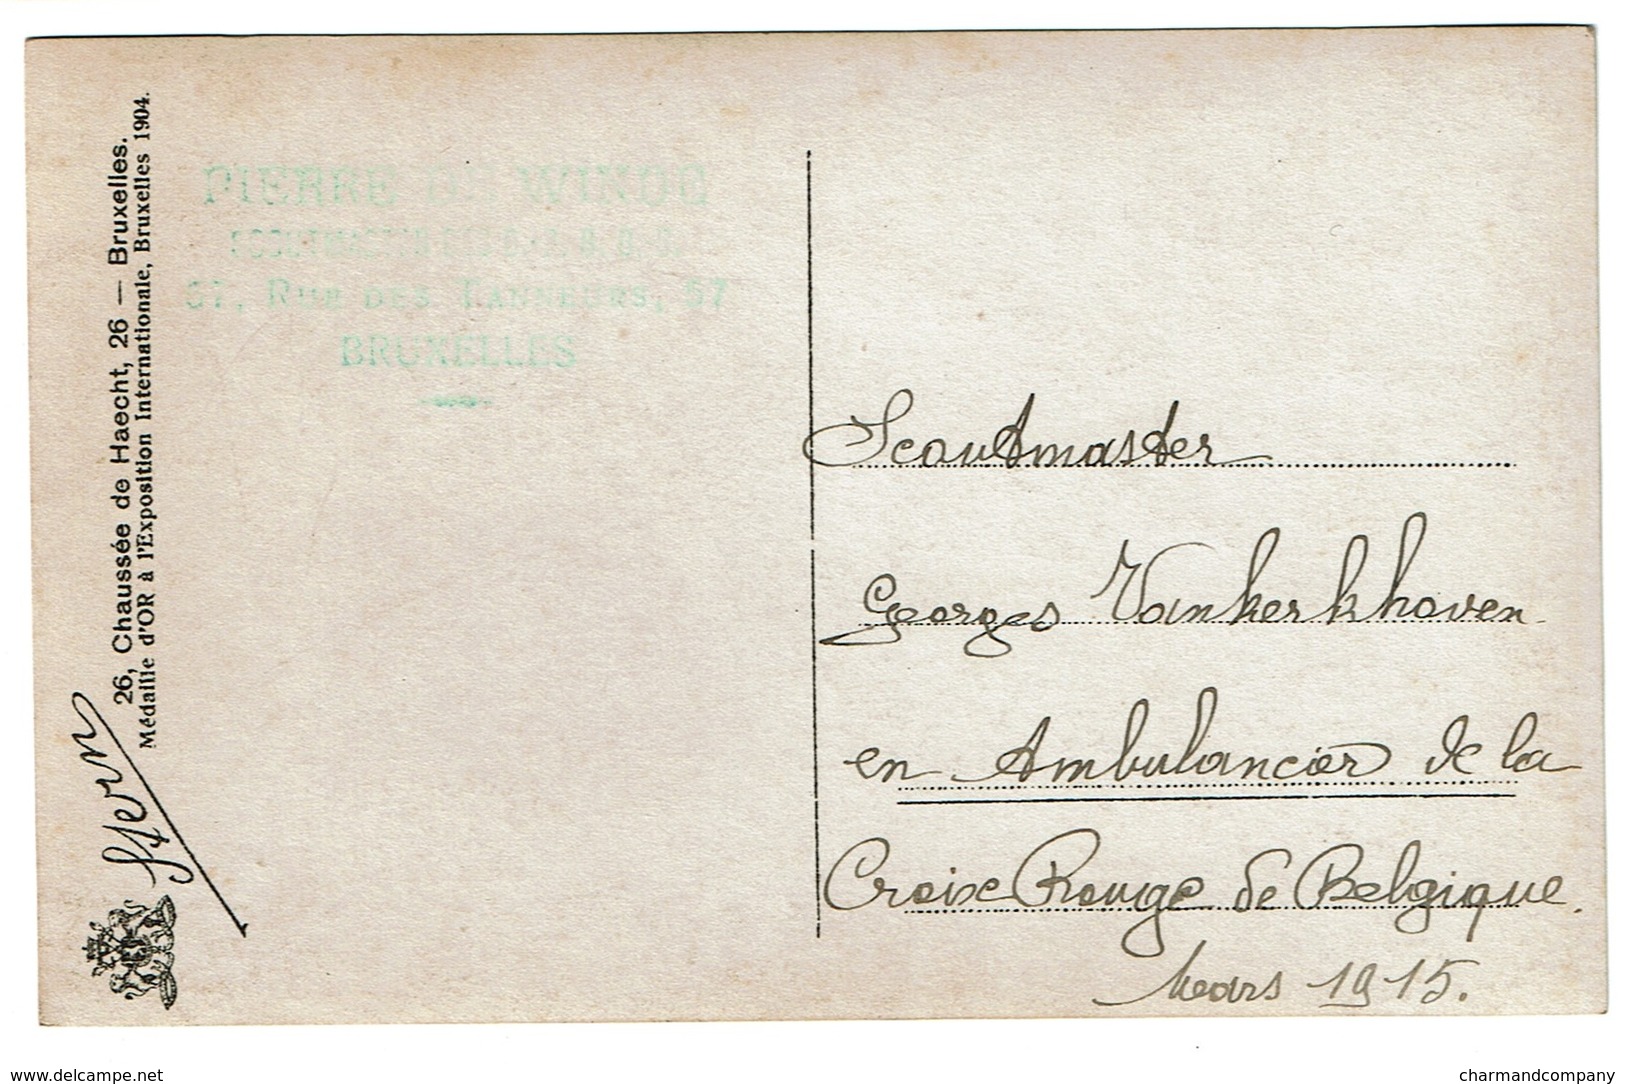 Stern
26, Chaussée de Haecht, 26 — Bruxelles.
Médaille d'OR à l'Exposition Internationale, Bruxelles 1904.
PIERRE DE WINDE
57, RUE DES TANNEURS, 57
BRUXELLES
Scoutmaster
Georges Vankerkhoven
en Ambulancier de la
Croix Rouge de Belgique.
Mars 1915.
www.delcampe.net
charmandcompany